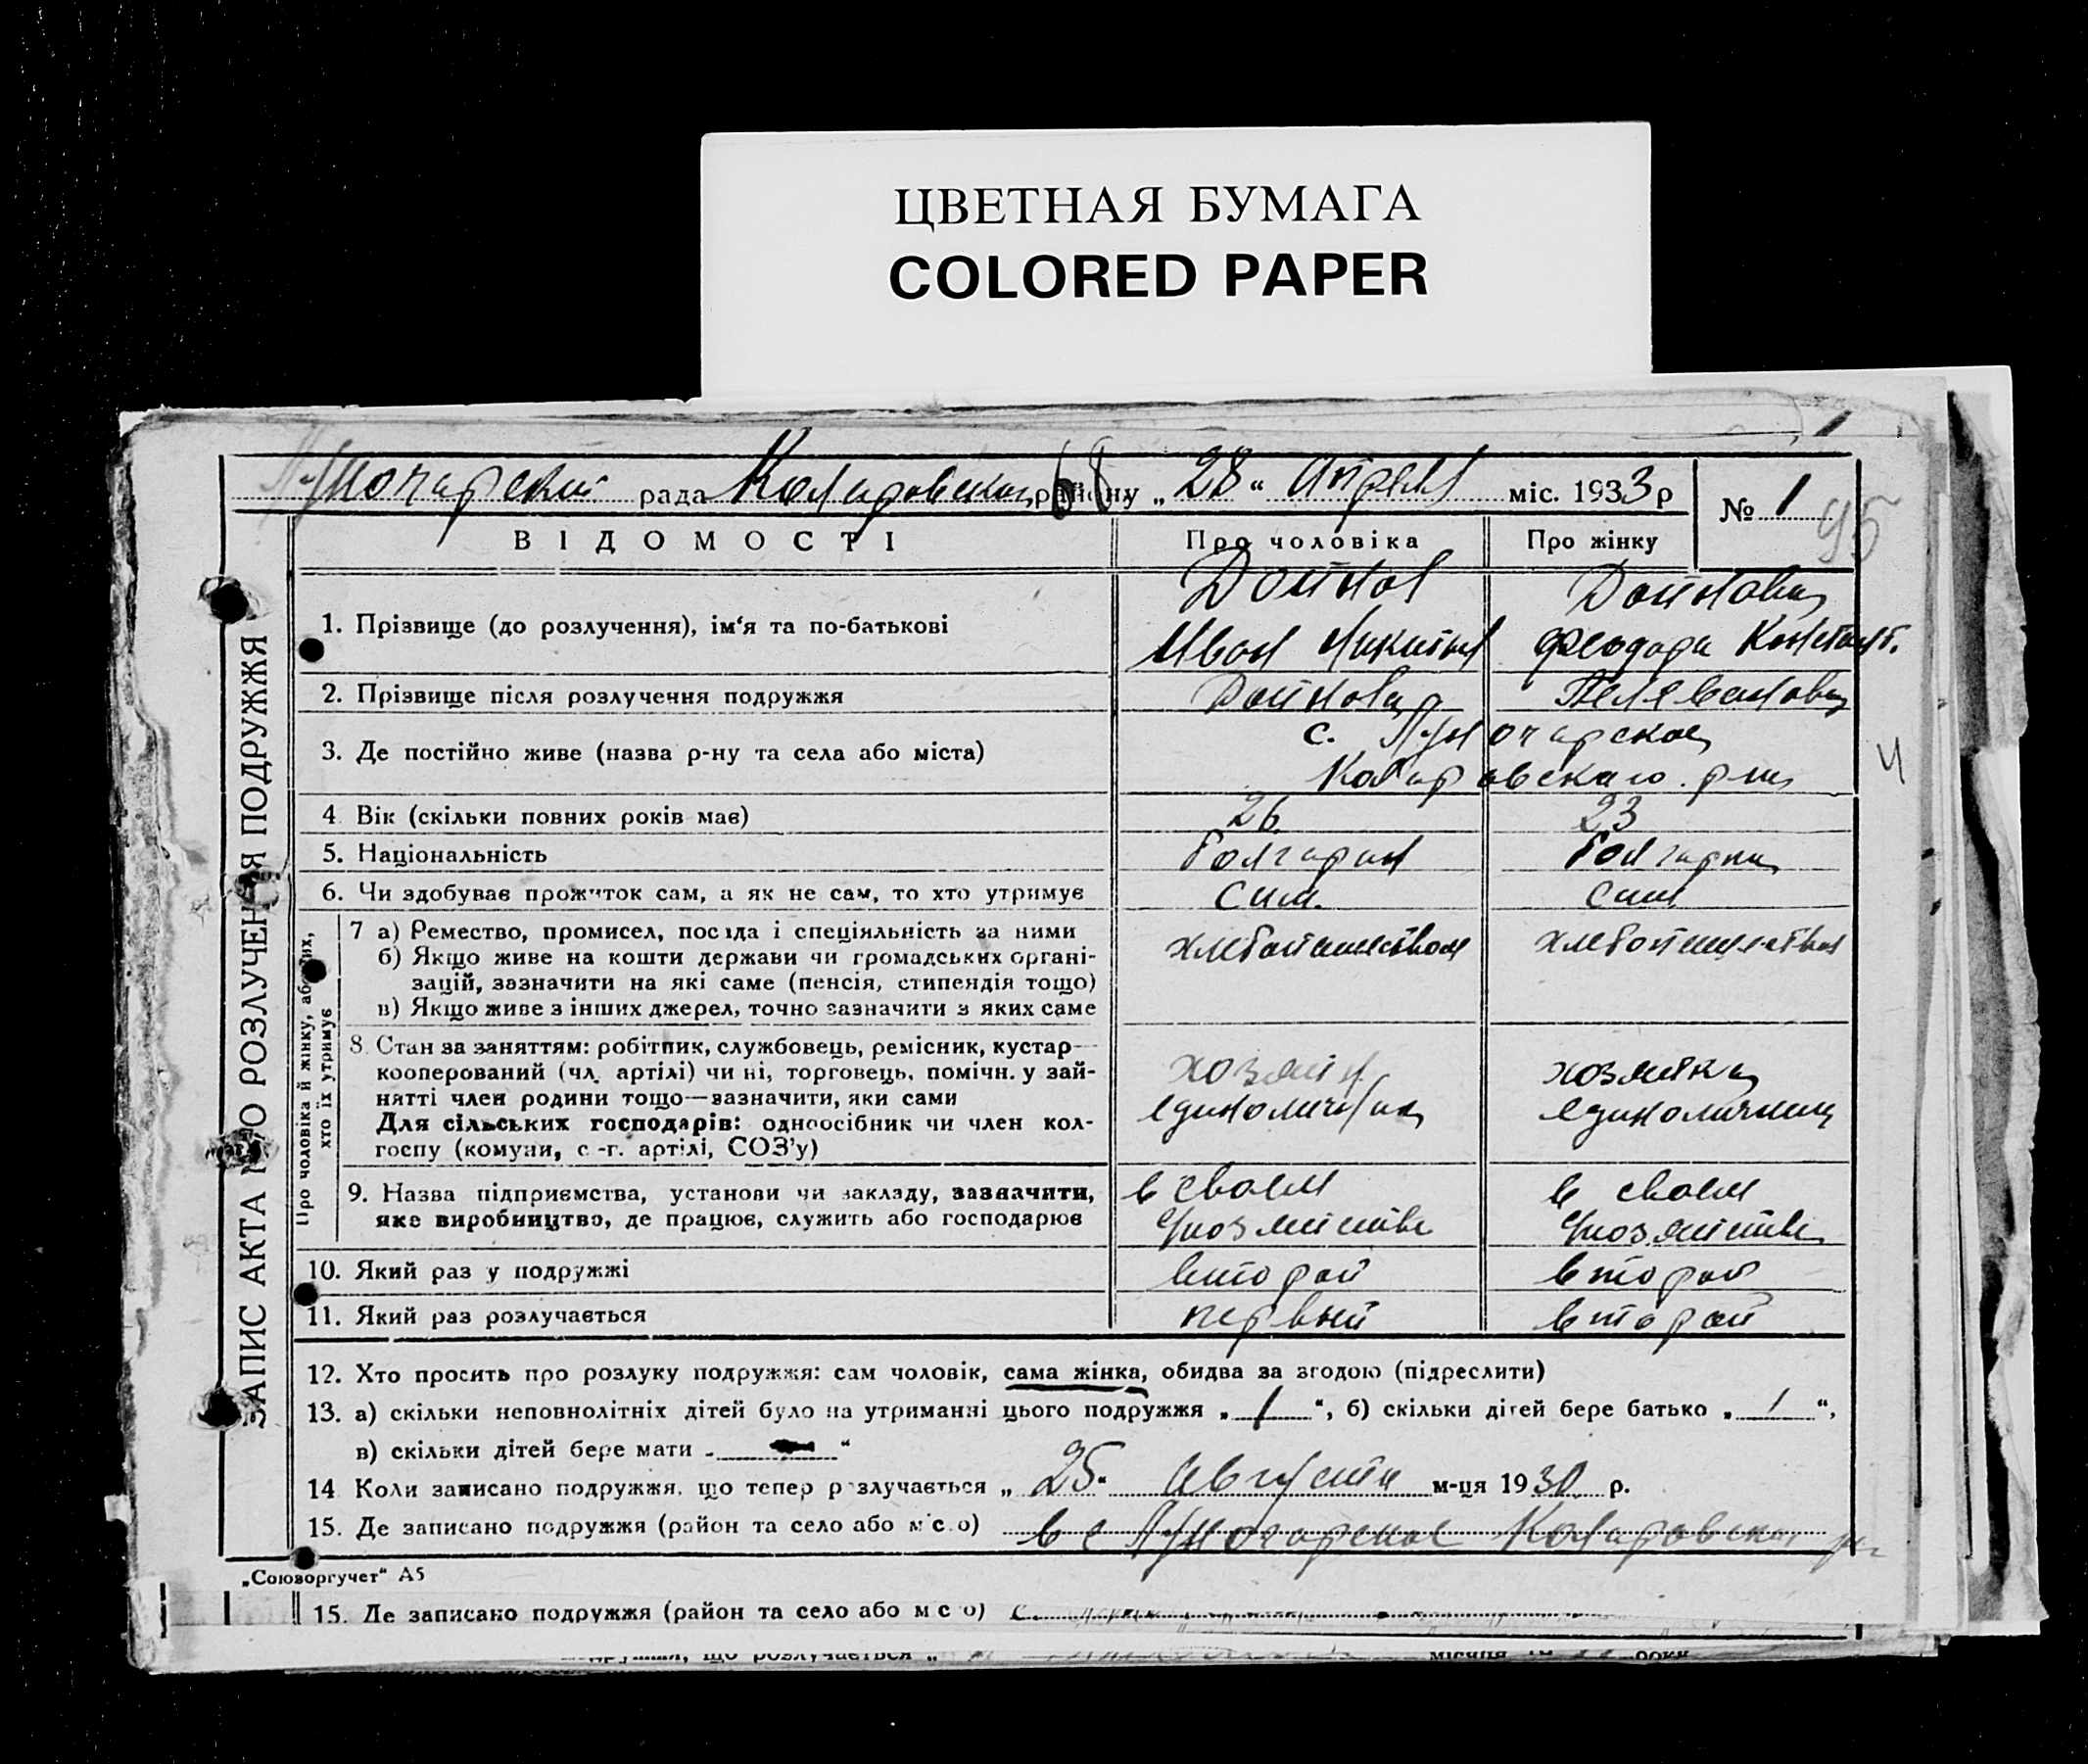 ЦВЕТНАЯ БУМАГА
COLORED PAPER
Луночарский рада Коларовскаго району „ 28 “ Апреля міс. 1933 р № 1
68
95
ВІДОМОСТІ Про чоловіка Про жінку
ЗАПИС АКТА ПРО РОЗЛУЧЕННЯ ПОДРУЖЖЯ
1. Прізвище (до розлучення), ім‘я та по-батькові Дойнов Иван Никитич Дойнова Феодора Констант.
2. Прізвище після розлучення подружжя Дойнова Пеливанова
3. Де постійно живе (назва р-ну та села або міста) с. Луночарское
Коларовскаго р-на
4 Вік (скільки повних років має) 26 23
5. Національність болгарин болгарка
6. Чи здобуває прожиток сам, а як не сам, то хто утримує сам. сам
Про чоловіка й жінку, або тих,
хто їх утримує
7 а) Ремество, промисел, посада і спеціяльність за ними хлебопашеством хлебопашеством
б) Якщо живе на кошти держави чи громадських органі-
зацій, зазначити на які саме (пенсія, стипендія тощо)
в) Якщо живе з інших джерел, точно зазначити з яких саме
8. Стан за заняттям: робітник, службовець, ремісник, кустар—
кооперований (чл. артілі) чи ні, торговець, помічн. у зай- хозяин хозяйка
нятті член родини тощо—зазначити, яки сами единоличник единоличница
Для сільських господарів: одноосібник чи член кол-
госпу (комуни, с.-г. артілі, СОЗ’у)
9. Назва підприємства, установи чи закладу, зазначити, в своем в своем
яке виробництво, де працює, служить або господарює хозяйстве хозяйстве
10. Який раз у подружжі второй второй
11. Який раз розлучається первый второй
12. Хто просить про розлуку подружжя: сам чоловік, сама жінка, обидва за згодою (підреслити)
13. а) скільки неповнолітніх дітей було на утриманні цього подружжя „ 1 “, б) скільки дітей бере батько „ 1 “,
в) скільки дітей бере мати „ “
14 Коли записано подружжя, що тепер розлучається „ 25 “ Августа м-ця 1930 р.
15. Де записано подружжя (район та село або місто) в с Луночарское Коларовскаго р-на
„Союзоргучет“ А5
15. Де записано подружжя (район та село або місто) с.
що розлучається „ місяця 19 роки